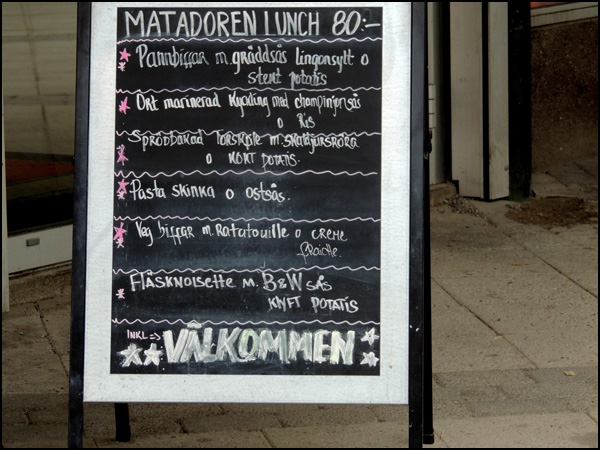 MATADOREN LUNCH 80:-
Pannbiffar m. gräddsås lingonsylt o
stekt potatis
Ört marinerad Kyckling med champinjonsås
o Ris
Sprödbakad Torskfile m. skaldjursröra
o KOKT POTATIS.
Pasta SKINKA o ostsås.
Veg biffar m. Ratatouille o CREME
fraiche
FläSKNoisette m. B&W SÅS
KLYFT POTATIS
INKL =>
VÄLKOMMEN